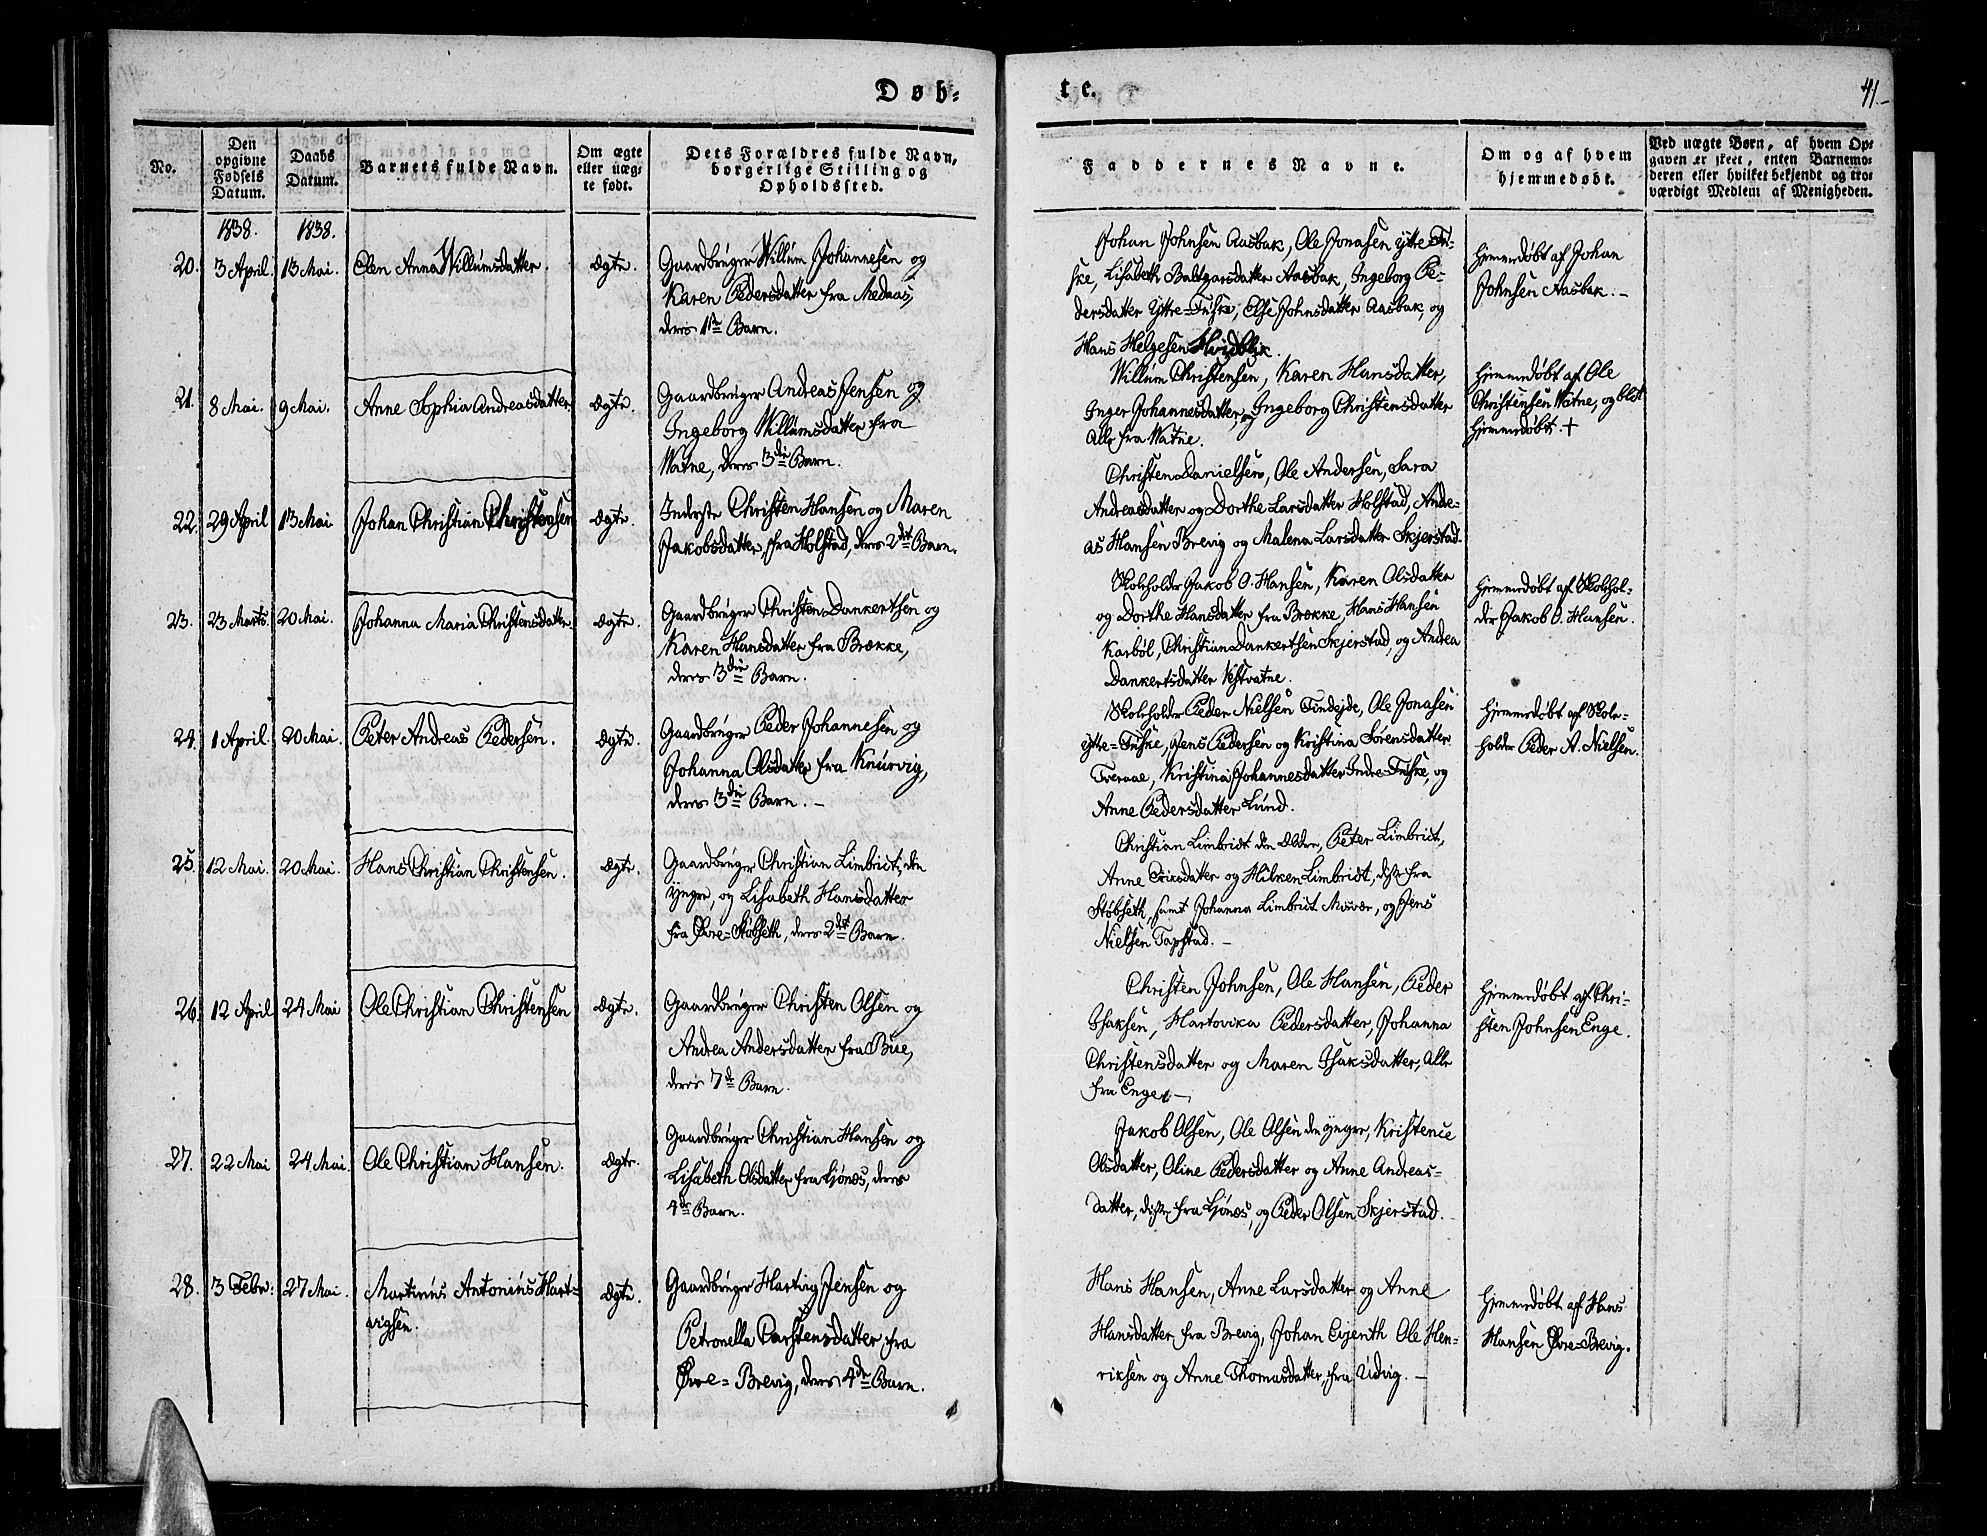 Døb-
te.
41.
No.
Den
opgivne
Fødsels
Datum.
Daabs
Datum.
Barnets fulde Navn.
Om ægte
eller uæg-
te født.
Dets Forældres fulde Navn,
borgerlige Stilling og
Opholdssted.
Faddernes Navne.
Om og af hvem
hjemmedøbt.
Ved uægte Børn, af hvem Op-
gaven er skeet, enten Barnemo-
deren eller hvilket bekjendt og tro-
værdigt Medlem af Menigheden.
1838. 1838.
20. 3 April. 13 Mai. Elen Anna Willumsdatter. Ægte.
Gaardbruger Willum Johannesen og
Karen Pedersdatter fra Medaas,
deres 1ste Barn.
Johan Johnsen Aasbak, Ole Jonasen ytte-Fu-
ske, Lisabeth Baltzarsdatter Aasbak, Ingeborg Pe-
dersdatter Ytre-Fuske, Else Johnsdatter Aasbak, og
Hans Helgesen Hvidblik.
Hjemmedøbt af Johan
Johnsen Aasbak.-
21. 8 Mai. 9 Mai. Anne Sophia Andreasdatter Ægte.
Gaardbruger Andreas Jensen og
Ingeborg Willumsdatter fra
Watne, deres 3die Barn.
Willum Christensen, Karen Hansdatter,
Inger Johannesdatter, og Ingeborg Christensdatter
Alle fra Watne.
Hjemmedøbt af Ole
Christensen Watne, og blot
hjemmedøbt. +
22. 29 April 13 Mai Johan Christian Christensen Ægte.
Inderste Christen Hansen og Maren
Jakobsdatter, fra Holstad, deres 2det Barn.
Christen Danielsen, Ole Andersen, Sara
Andreasdatter og Dorthe Larsdatter Holstad, Andre-
as Hansen Brevig og Malena Larsdatter Skjerstad.
23. 23 Marts. 20 Mai. Johanna Maria Christensdatter. Ægte.
Gaardbruger Christen Dankertsen og
Karen Hansdatter fra Brække,
deres 3die Barn.
Skoleholder Jakob O. Hansen, Karen Olsdatter
og Dorthe Hansdatter fra Brække, Hans Hansen
Karbøl, Christian Dankertsen Skjerstad, og Andrea
Dankertsdatter Vestvatne.
Hjemmedøbt af Skolehol-
der Jakob O. Hansen.
24. 1 April. 20 Mai. Peter Andreas Pedersen. Ægte.
Gaardbruger Peder Johannesen og
Johanna Olsdatter fra Knurvig,
deres 3die Barn.-
Skoleholder Peder Nielsen Tindejde, Ole Jonasen
ytte-Fuske, Jens Pedersen og Kristina Sørensdatter
Tveraae, Kristina Johannesdatter Indre-Fuske, og
Anne Pedersdatter Lund.
Hjemmedøbt af Skole-
holder Peder A. Nielsen.
25. 12 Mai. 20 Mai. Hans Christian Christensen. Ægte.
Gaardbruger Christian Limbridt, den
yngre, og Lisabeth Hansdatter
fra Øvre-Støbseth, deres 2det Barn.
Christian Limbridt den Ældre, Peter Limbridt,
Anne Eriksdatter og Hilken Limbridt, disse fra
Støbseth, samt Johanna Limbridt Misvær, og Jens
Nielsen Tapstad.-
26. 12 April 24 Mai Ole Christian Christensen Ægte.
Gaardbruger Christen Olsen og
Andrea Andersdatter fra Bue,
deres 7de Barn.
Christen Johnsen, Ole Hansen, Peder
Isaksen, Hartovika Pedersdatter, Johanna
Christensdatter og Maren Isaksdatter, Alle
fra Enge.-
Hjemmedøbt af Chri-
sten Johnsen Enge.
27. 22 Mai 24 Mai. Ole Christian Hansen. Ægte.
Gaardbruger Christian Hansen og
Lisabeth Olsdatter fra Ljønæs, deres
4de Barn.
Jakob Olsen, Ole Olsen den yngre, Kristence
Olsdatter, Oline Pedersdatter og Anne Andreas-
datter, disse fra Ljønæs, og Peder Olsen Skjerstad.
28. 3 Febr: 27 Mai. Martinus Antonius Hart-
vigsen. Ægte.
Gaardbruger Hartvig Jensen og
Petronella Carstensdatter fra
Øvre-Brevig, deres 4de Barn.
Hans Hansen, Anne Larsdatter og Anne
Hansdatter, fra Brevig, Johan Evjenth Ole Hen-
riksen og Anne Thomasdatter, fra Udvig.-
Hjemmedøbt af Hans
Hansen Øvre-Brevig.